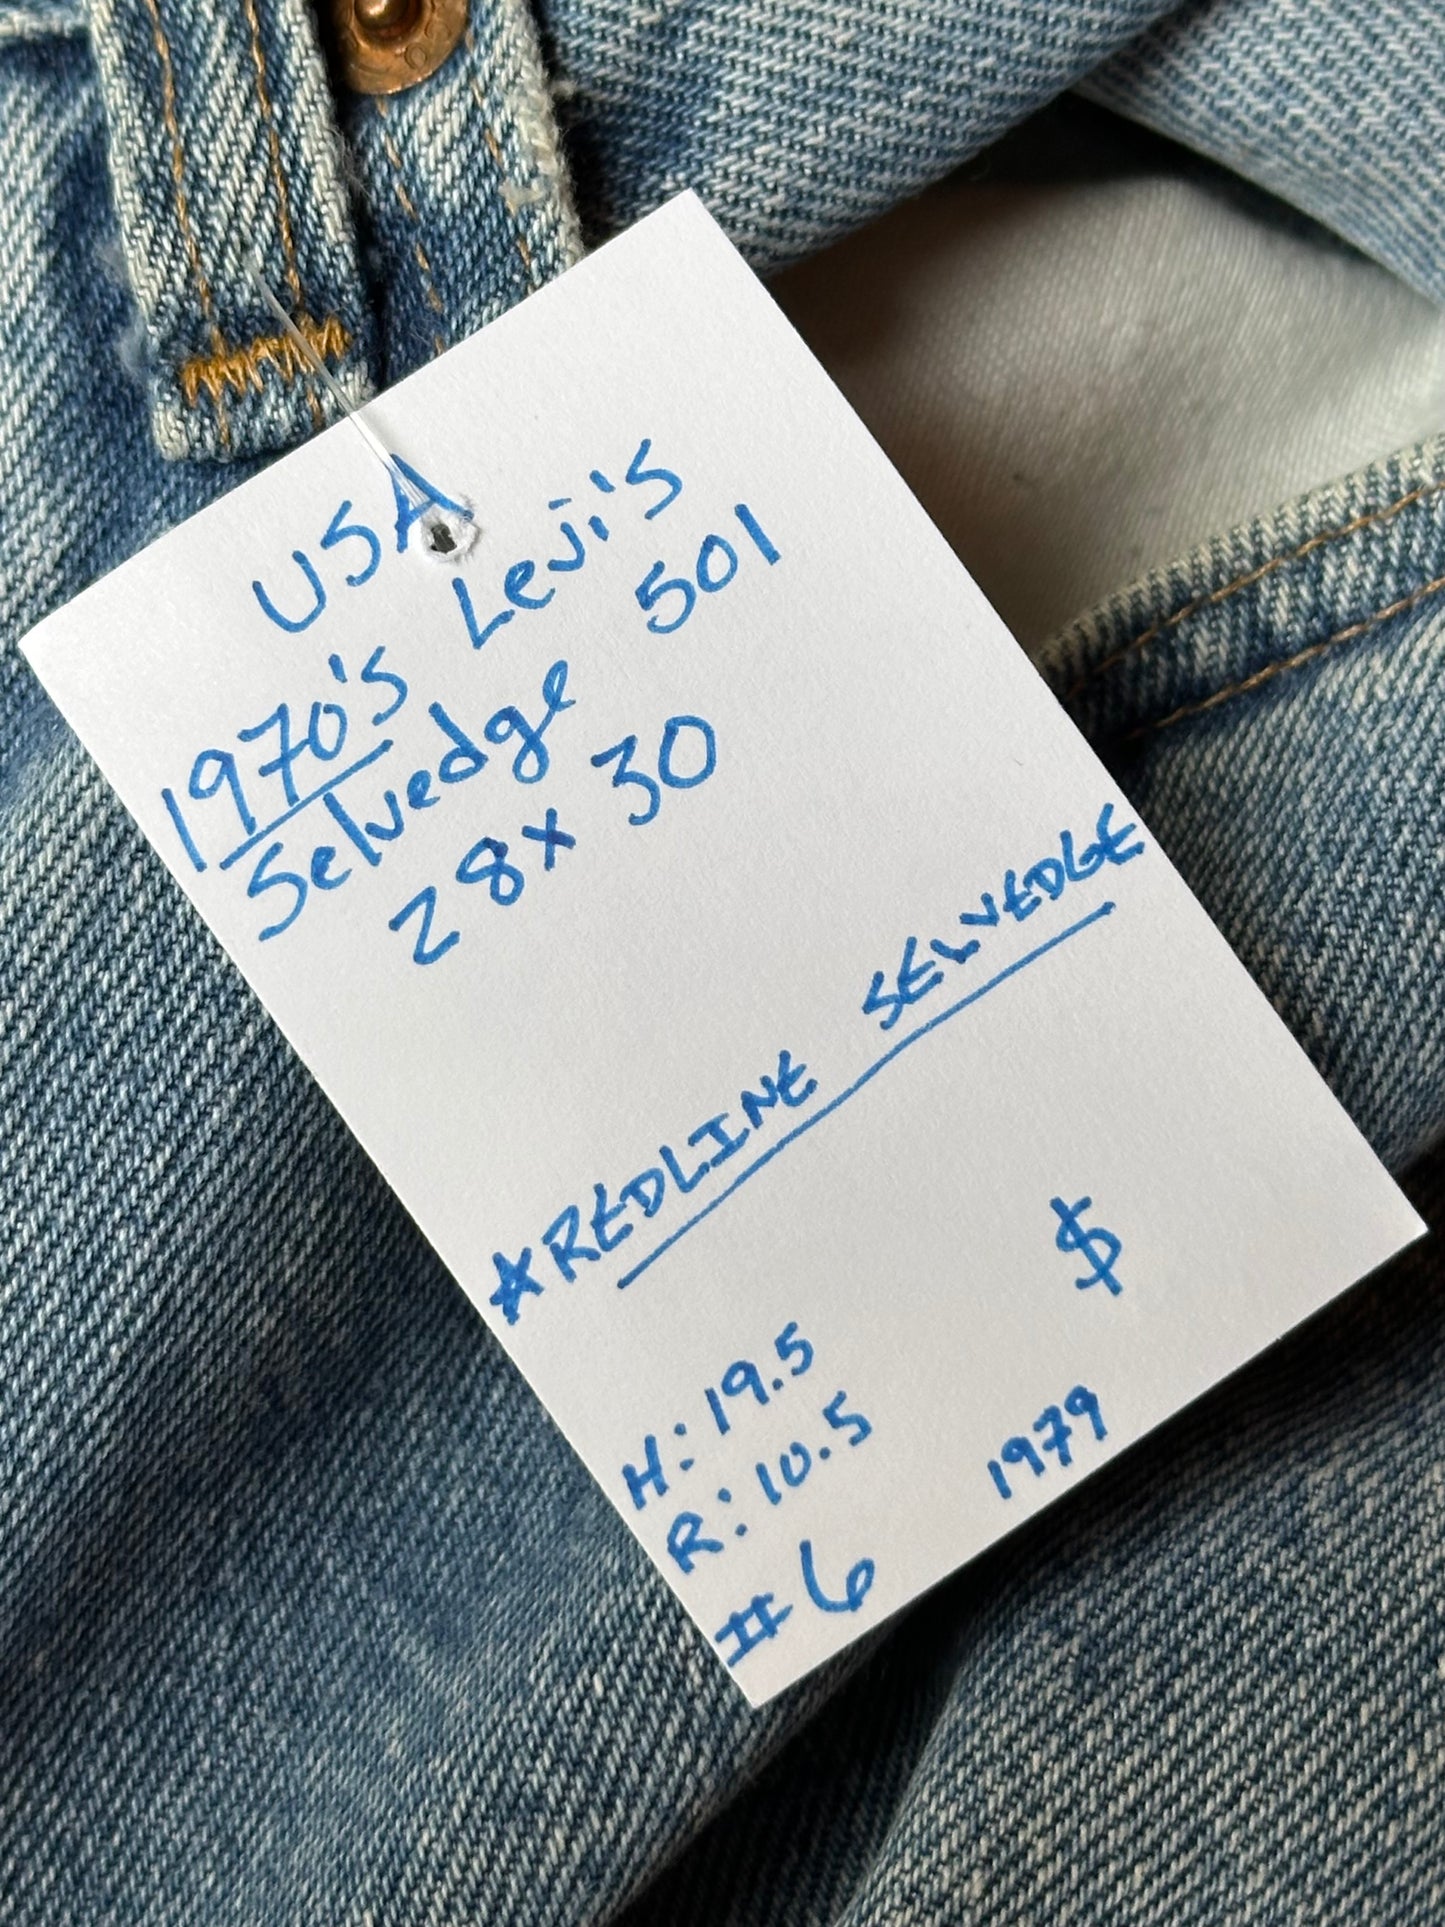 USA
1970's Levi's
Selvedge 501
28x 30
☆REDLINE SELVEDGE
$
H: 19.5
R: 10.5
1979
#6